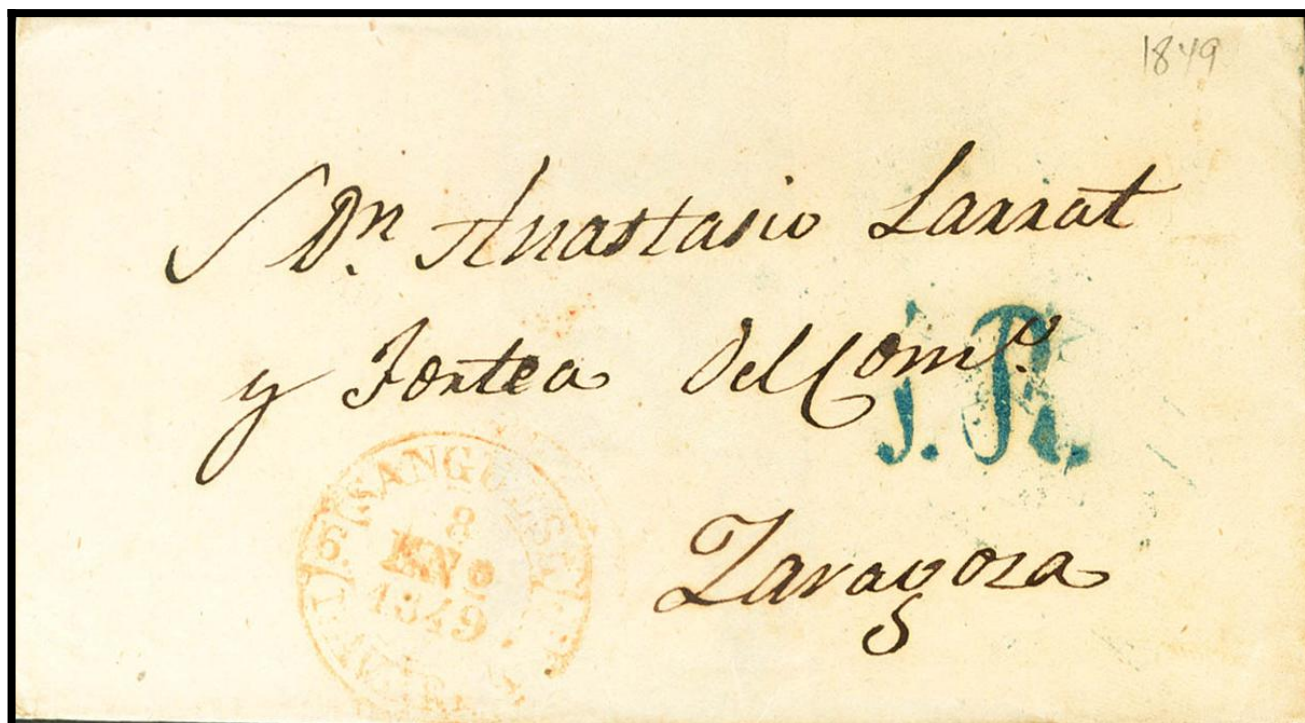 1849
Dn. Anastasio Larrat
y Fortea Del Comº.
1.R.
Zaragoza
SANGUESA
8
ENº
1849